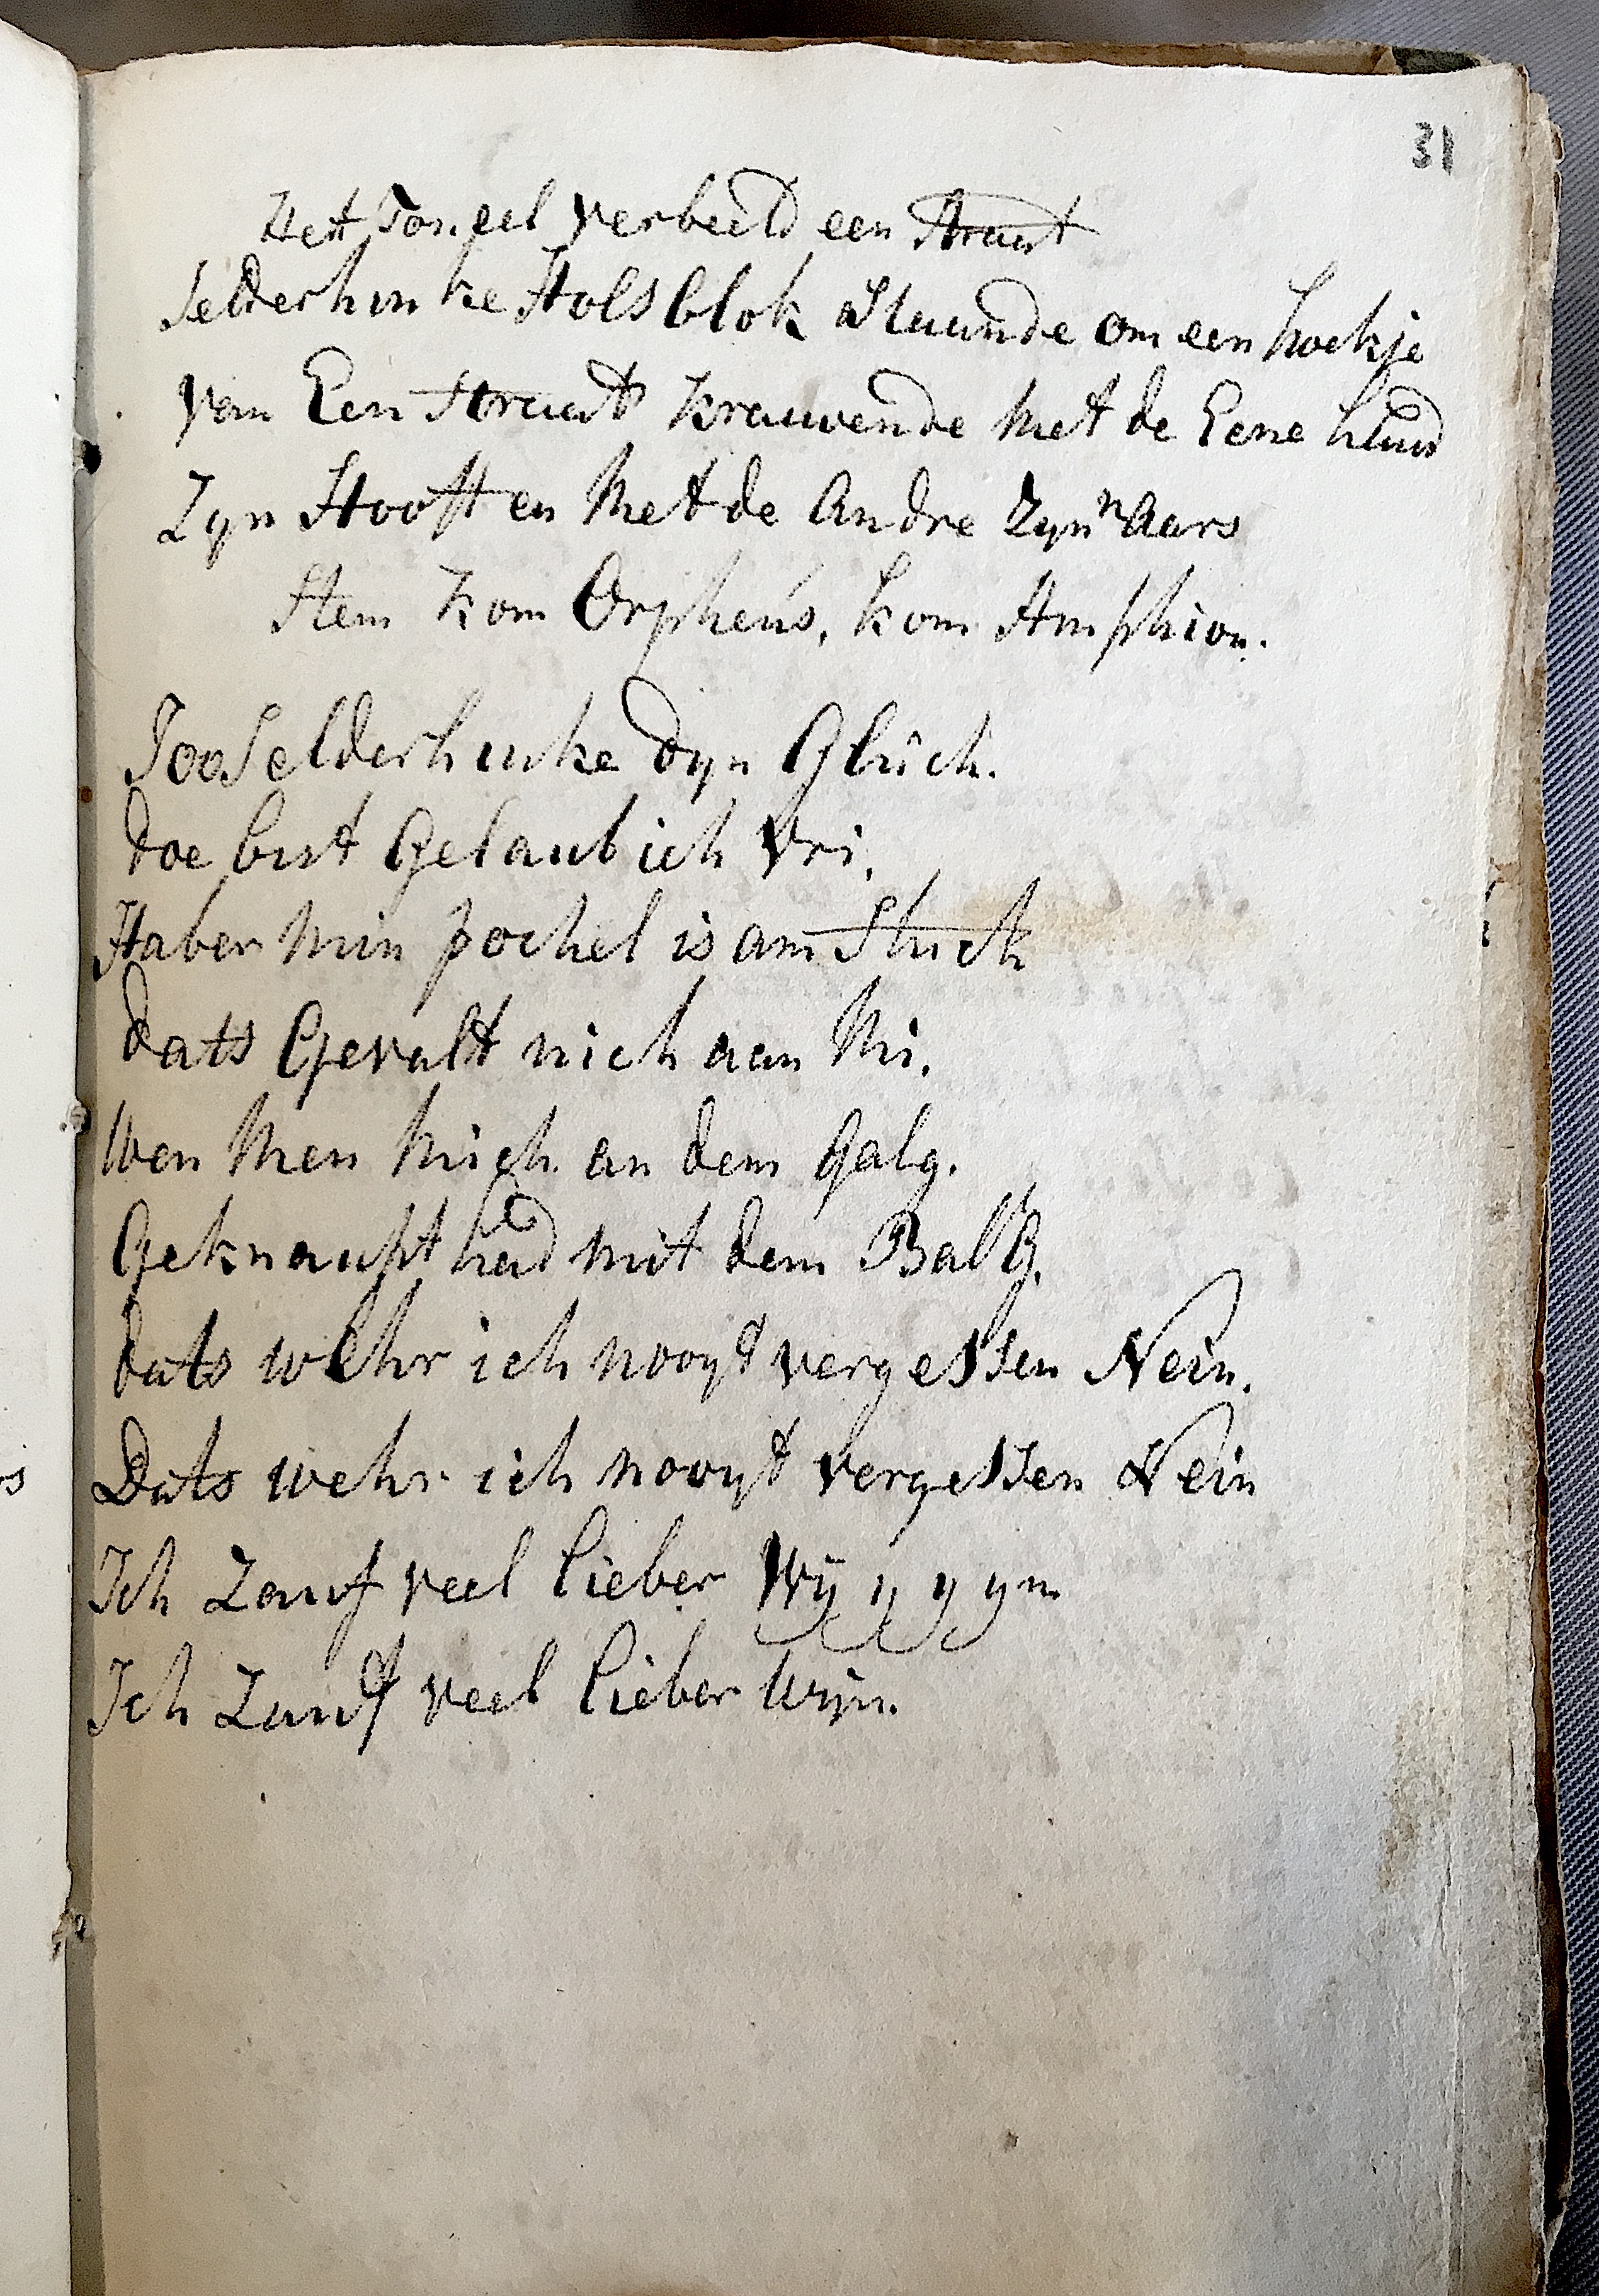 31
Het Toneel verbeeld een Straat
Selderhinke Holsblok Staande om een hoekje
van Een Straat krauwende met de Eene hand
Zyn Hooft en Met de Andre Zynn aars
Stem Kom Orpheús, kom Amphion.
Joo Selderhinke dyn Glúch.
doe bist Gelaub ich Vri.
Haber min pochel is am Stuck
dats Gevalt nich aan Mi.
Wen Men Mich an dem Galg.
Geknaupt had mit dem Balg.
dats wehr ich nooyt vergessen Nein.
Dats wehr ich nooyt vergessen Nein
Ich Zauf veel lieber Wÿ ÿ y yn
Ich Zauf veel lieber Wijn.